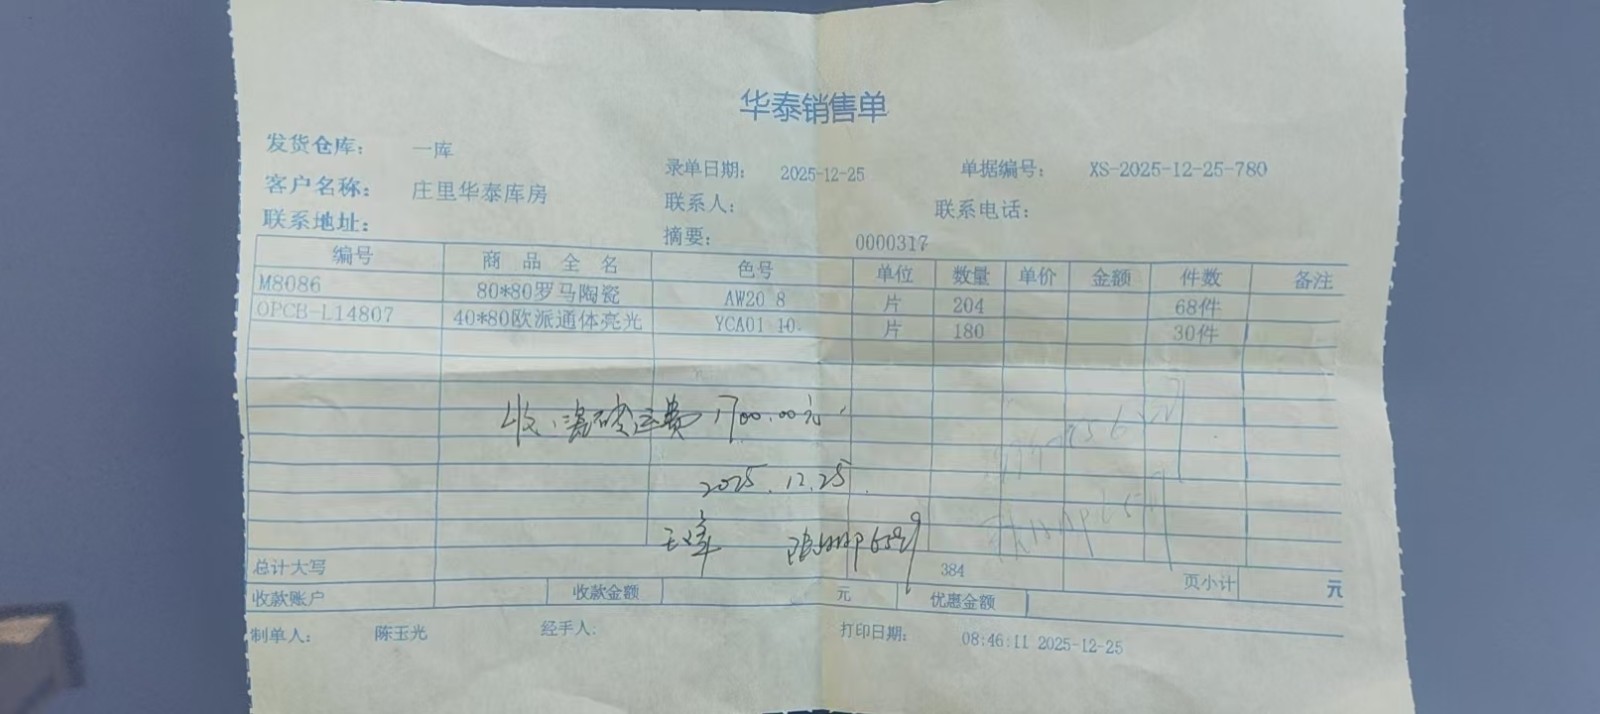 华泰销售单
发货仓库： 一库
录单日期： 2025-12-25 单据编号： XS-2025-12-25-780
客户名称： 庄里华泰库房 联系人： 联系电话：
联系地址： 摘要： 0000317
编号 商品全名 色号 单位 数量 单价 金额 件数 备注
M8086 80*80罗马陶瓷 AW20 8 片 204 68件
OPCB-L14807 40*80欧派通体亮光 YCA01 10. 片 180 30件
收：瓷砖运费1700.00元.
2025.12.25
总计大写 384 页小计 元
收款账户 收款金额 元 优惠金额
制单人： 陈玉光 经手人: 打印日期： 08:46:11 2025-12-25